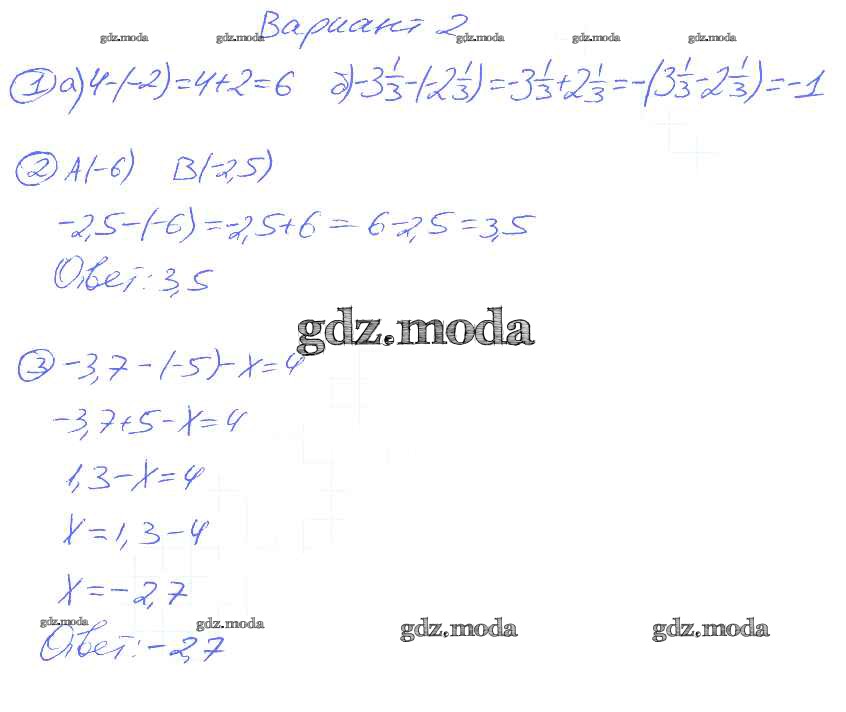 Вариант 2
gdz.moda gdz.moda gdz.moda gdz.moda gdz.moda
1 а) 4-(-2)=4+2=6 б) -3 1/3-(-2 1/3)=-3 1/3+2 1/3=-(3 1/3-2 1/3)=-1
2 A(-6) B(-2,5)
-2,5-(-6)=-2,5+6=6-2,5=3,5
Ответ: 3,5
gdz.moda
3 -3,7-(-5)-x=4
-3,7+5-x=4
1,3-x=4
x=1,3-4
x=-2,7
gdz.moda gdz.moda gdz.moda gdz.moda
Ответ: -2,7